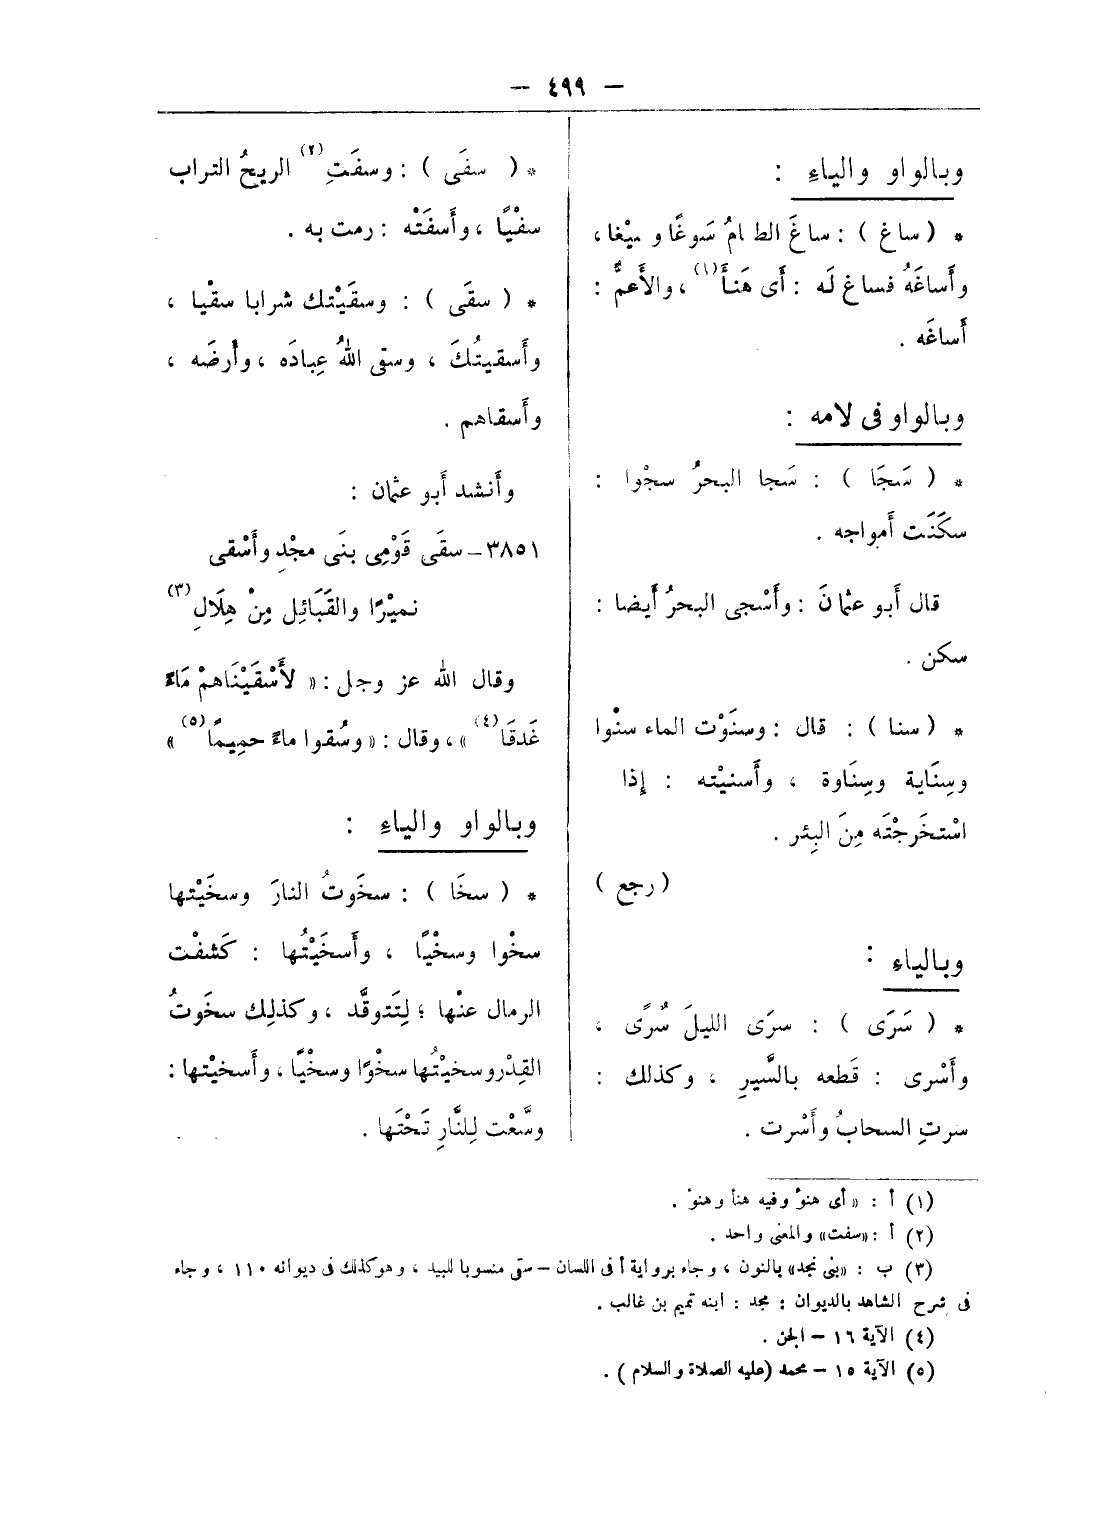 — ٤٩٩ —
وبالواو والياءِ :
* ( ساغ ) : ساغَ الطعامُ سَوغًا وسيْغا ،
وأَساغَهُ فساغ لَه : أَى هَنأَ (١) ، والأَعمُّ :
أَساغَه .
وبالواو فى لامه :
* ( سَجَا ) : سَجا البحرُ سجْوا :
سكَنَت أَمواجه .
قال أَبو عثمانَ : وأَسْجى البحرُ أَيضا :
سكن .
* ( سنا ) : قال : وسنَوْت الماء سنْوا
وسِنَاية وسِنَاوة ، وأَسنيْته : إِذا
اسْتخَرجْتَه مِنَ البِئر .
( رجع )
وبالياء :
* ( سَرَى ) : سرَى الليلَ سُرًى ،
وأَسْرى : قَطعه بالسَّيرِ ، وكذلك :
سرتِ السحابُ وأَسْرت .
* ( سفَى ) : وسفَتِ (٢) الريحُ التراب
سفْيًا ، وأَسفَتْه : رمت به .
* ( سقَى ) : وسقَيْتك شرابا سقْيا ،
وأَسقيتُكَ ، وسقى اللهُ عِبادَه ، وأَرضَه ،
وأَسقاهم .
وأَنشد أَبو عثمان :
٣٨٥١ – سقَى قَوْمِى بنَى مجْدٍ وأَسْقى
نميْرًا والقَبَائِل مِنْ هِلَالِ (٣)
وقال الله عز وجل : « لأَسْقَيْنَاهمْ مَاءً
غَدقَا (٤) » ، وقال : « وسُقوا ماءً حمِيمًا (٥) »
وبالواو والياءِ :
* ( سخَا ) : سخَوتُ النارَ وسخَيْتها
سخْوا وسخْيًا ، وأَسخَيْتُها : كَشفْت
الرمال عنْها ؛ لِتَتوقَّد ، وكذلِك سخَوتُ
القِدْر وسخيْتُها سخْوًا وسخْيًا ، وأَسخيْتها :
وسَّعْت لِلنَّارِ تَحْتَها .
(١) أ : « أى هنؤ وفيه هنأ وهنؤ .
(٢) أ : «سفت» والمعنى واحد .
(٣) ب : «بنى نجد» بالنون ، وجاء برواية أ فى اللسان – سقى منسوبا للبيد ، وهو كذلك فى ديوانه ١١٠ ، وجاء
فى شرح الشاهد بالديوان : مجد : ابنه تميم بن غالب .
(٤) الآية ١٦ – الجن .
(٥) الآية ١٥ – محمد (عليه الصلاة والسلام) .